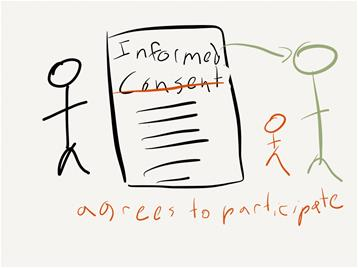 Informed
Consent
agrees to participate